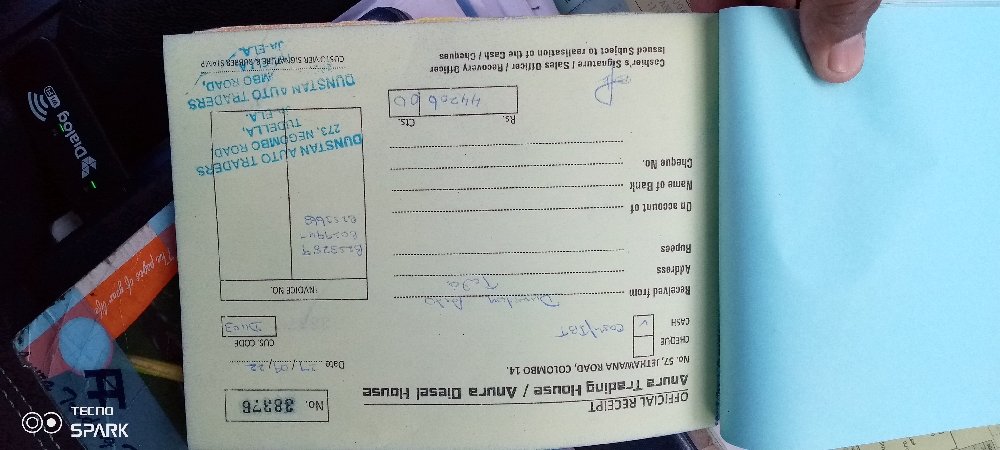 OFFICIAL RECEIPT
Anura Trading House / Anura Diesel House
No. 57, JETHAWANA ROAD, COLOMBO 14.
No. 38376
Date 27/09/22
CHEQUE
CASH
CUS. CODE
Received from
Address
Rupees
On account of
Name of Bank
Cheque No.
INVOICE NO.
Rs. Cts.
44206 00
Cashier's Signature / Sales Officer / Recovery Officer
Issued Subject to realisation of the Cash / Cheques
DUNSTAN AUTO TRADERS
273, NEGOMBO ROAD
TUDELLA,
JA-ELA.
CUSTOMER SIGNATURE & RUBBER STAMP
DUNSTAN AUTO TRADERS
MBO ROAD,
JA-ELA.
Dialog
WiFi
The pages of your life
TECNO
SPARK